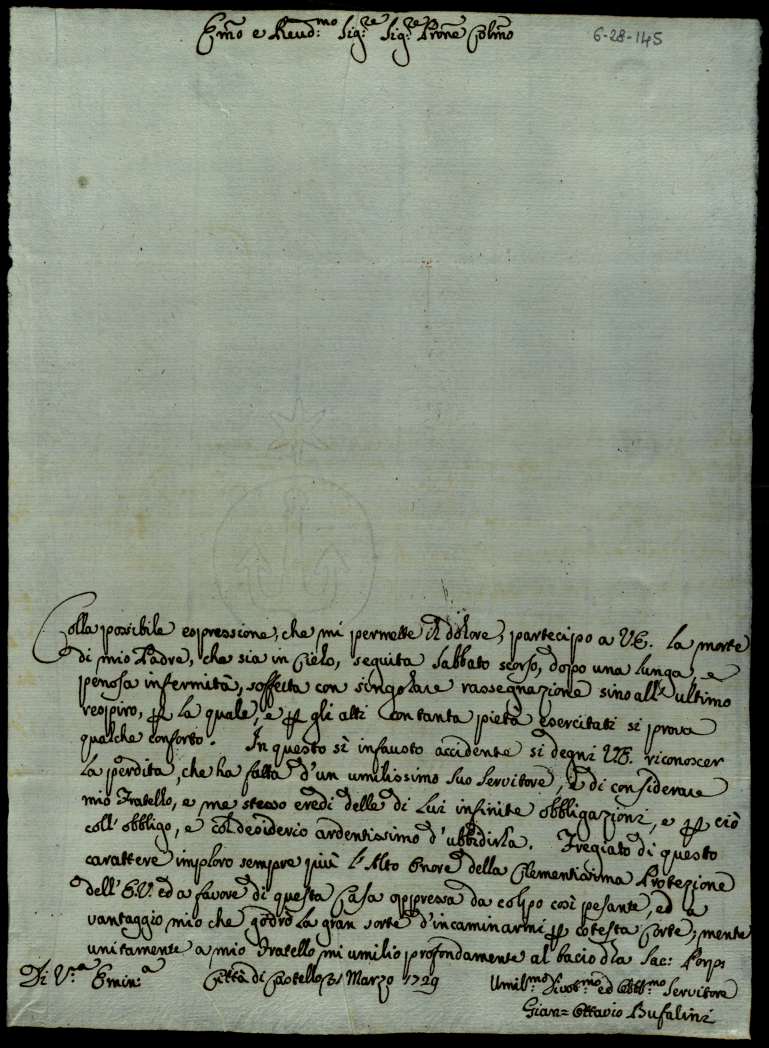 Em̃o e Reud:mo Sig:re Sig:re Prõne Colm̃o
6-28-145
Colla possibile espressione, che mi permette il dolore, partecipo a V.E. la morte
di mio Padre, che sia in Cielo, seguita Sabbato scorso, dopo una lunga, e
penosa infermità, sofferta con singolare rassegnazione sino all' ultimo
respiro, ꝑ la quale, e ꝑ gli atti con tanta pietà esercitati si prova
qualche conforto. In questo sì infausto accidente si degni V.E. riconoscer
la perdita, che ha fatta d'un umilissimo suo Servitore, e di considerare
mio Fratello, e me stesso eredi delle di Lui infinite obbligazioni, e ꝑ ciò
coll' obbligo, e col desiderio ardentissimo d'ubbidirla. Fregiato di questo
carattere imploro sempre più l'Alto Onore della Clementissima Protezione
dell' E.V. ed a favore di questa Casa oppressa da colpo così pesante, ed a
vantaggio mio che godrò la gran sorte d'incaminarmi ꝑ cotesta Corte; mente
unitamente a mio Fratello mi umilio profondamente al bacio dla Sac: Porp:
Di V:ra Emin:a Città di Castello 3 Marzo 1729 Umil:mo Divot:mo ed Obbl:mo Servitore
Gian= Ottavio Bufalini